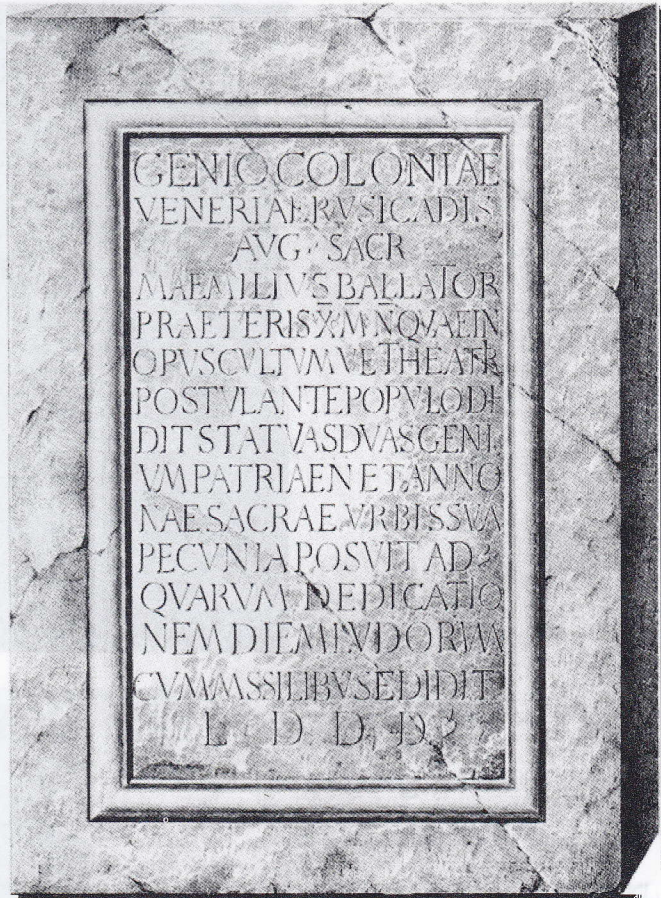 GENIO COLONIAE
VENERIAE RVSICADIS
AVG SACR
M AEMILIVS BALLATOR
PRAETER IS X̅ M N̅ QVAE IN
OPVS CVLTVMVE THEATR
POSTVLANTE POPVLO DE
DIT STATVAS DVAS GENI
VM PATRIAE N ET ANNO
NAE SACRAE VRBIS SVA
PECVNIA POSVIT AD
QVARVM DEDICATIO
NEM DIEM LVDORVM
CVM MSSILIBVS EDIDIT
L D D D